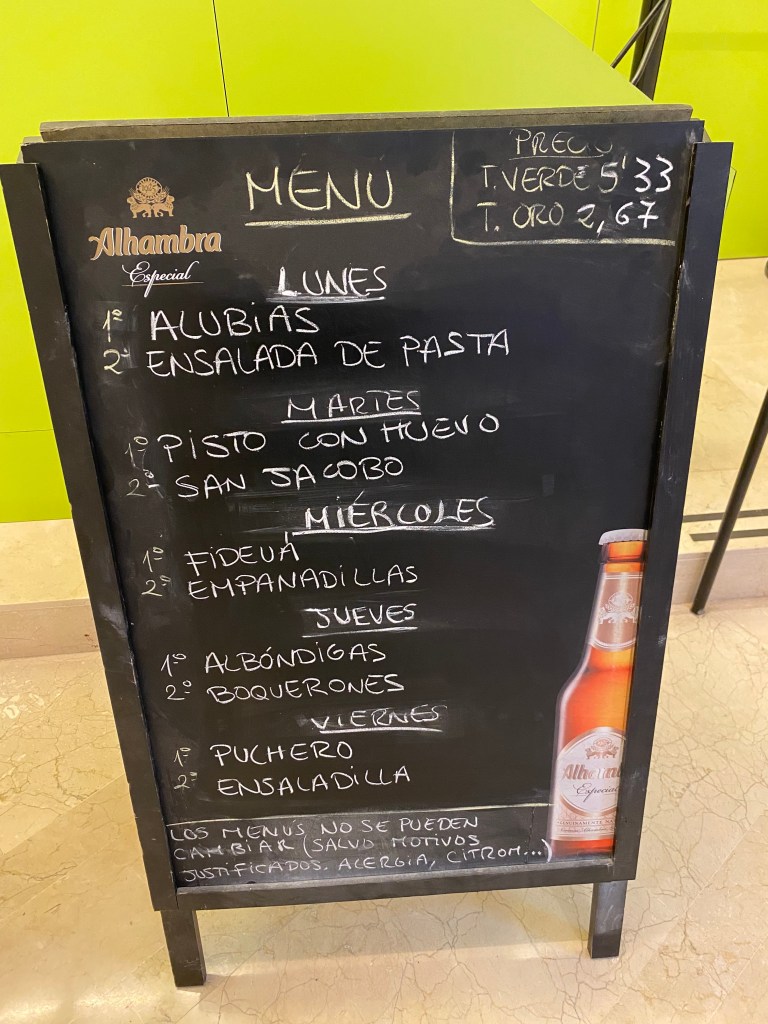 MENU
PRECIO
T. VERDE 5'33
T. ORO 2,67
Alhambra
Especial
LUNES
1º ALUBIAS
2º ENSALADA DE PASTA
MARTES
1º PISTO CON HUEVO
2º SAN JACOBO
MIÉRCOLES
1º FIDEUÁ
2º EMPANADILLAS
JUEVES
1º ALBÓNDIGAS
2º BOQUERONES
VIERNES
1º PUCHERO
2º ENSALADILLA
LOS MENUS NO SE PUEDEN
CAMBIAR (SALVO MOTIVOS
JUSTIFICADOS. ALERGIA, CITROM...)
Alhambra
Especial